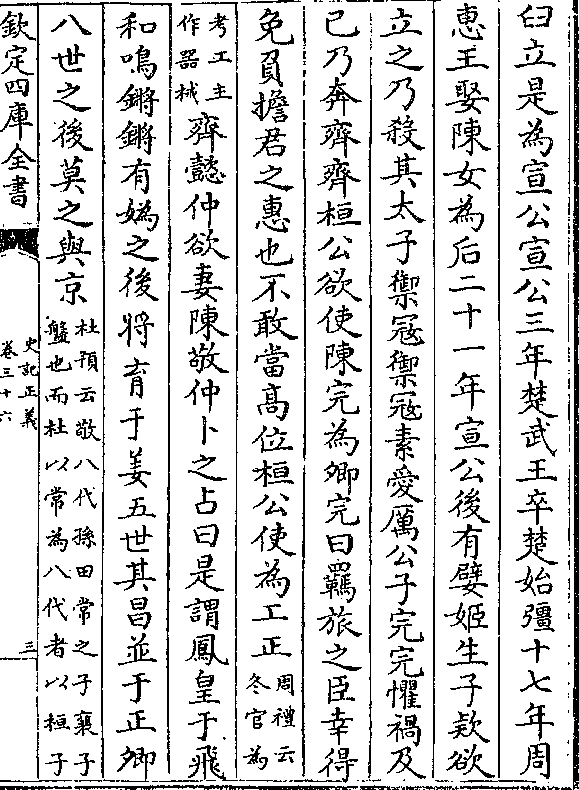 臼立是為宣公宣公三年楚武王卒楚始彊十七年周
惠王娶陳女為后二十一年宣公後有嬖姬生子款欲
立之乃殺其太子禦寇禦寇素愛厲公子完完懼禍及
已乃奔齊齊桓公欲使陳完為卿完曰羈旅之臣幸得
免負擔君之惠也不敢當高位桓公使為工正周禮云冬官為
考工主作器械齊懿仲欲妻陳敬仲卜之占曰是謂鳳皇于飛
和鳴鏘鏘有媯之後將育于姜五世其昌並于正卿
八世之後莫之與京杜預云敬八代孫田常之子襄子盤也而杜以常為八代者以桓子
欽定四庫全書
史記正義
卷三十六
三